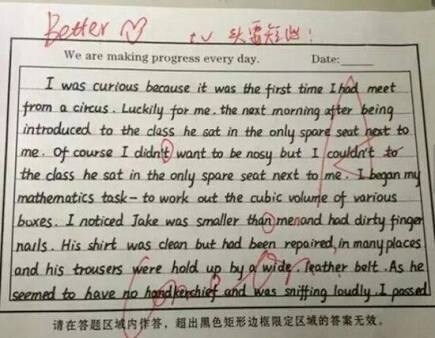 Better 头 短些!
We are making progress every day. Date:
I was curious because it was the first time I had meet
from a circus. Luckily for me, the next morning after being
introduced to the class he sat in the only spare seat next to
me. Of course I didn't want to be nosy but I couldn't to
the class he sat in the only spare seat next to me. I began my
mathematics task- to work out the cubic volume of various
boxes. I noticed Jake was smaller than me and had dirty finger
nails. His shirt was clean but had been repaired, in many places
and his trousers were hold up by a wide, leather belt. As he
seemed to have no handkerchief and was sniffing loudly. I passed
请在答题区域内作答，超出黑色矩形边框限定区域的答案无效。